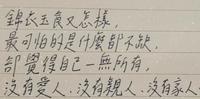 錦衣玉食又怎樣,
最可怕的是什麼都不缺,
卻覺得自己一無所有,
沒有愛人、沒有親人、沒有家人、